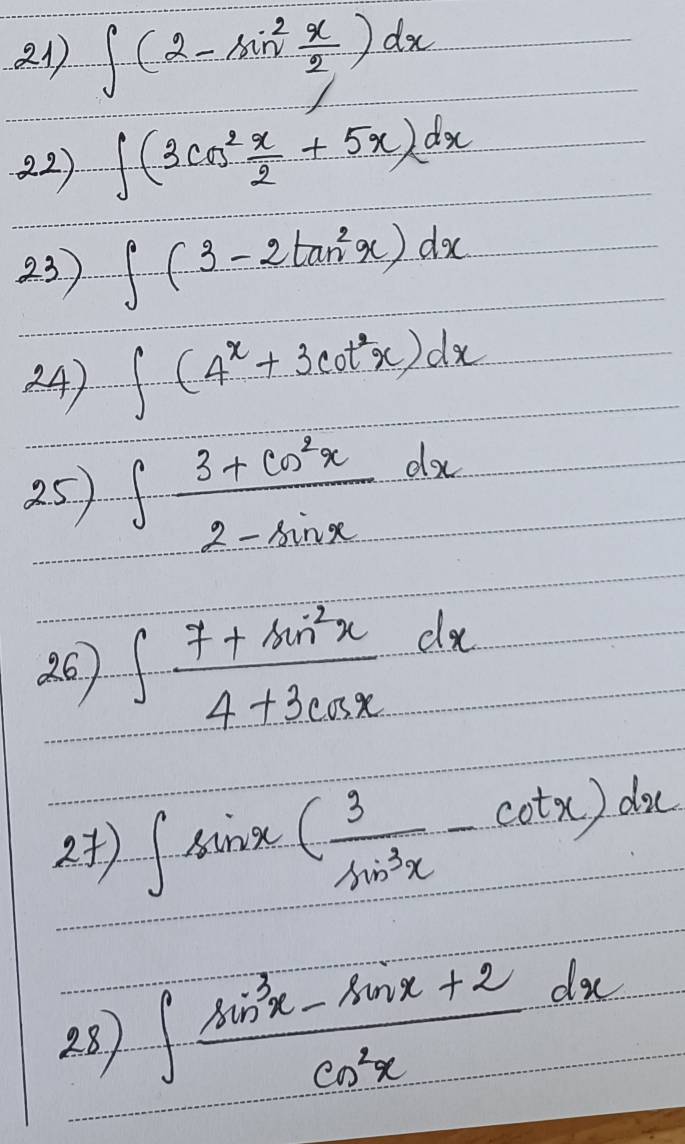 21) ∫ (2 - sin² x/2) dx
22) ∫ (3cos² x/2 + 5x) dx
23) ∫ (3 - 2tan²x) dx
24) ∫ (4ˣ + 3cot²x) dx
25) ∫ (3 + cos²x)/(2 - sinx) dx
26) ∫ (7 + sin²x)/(4 + 3cosx) dx
27) ∫ sinx (3/sin³x - cotx) dx
28) ∫ (sin³x - sinx + 2)/cos²x dx